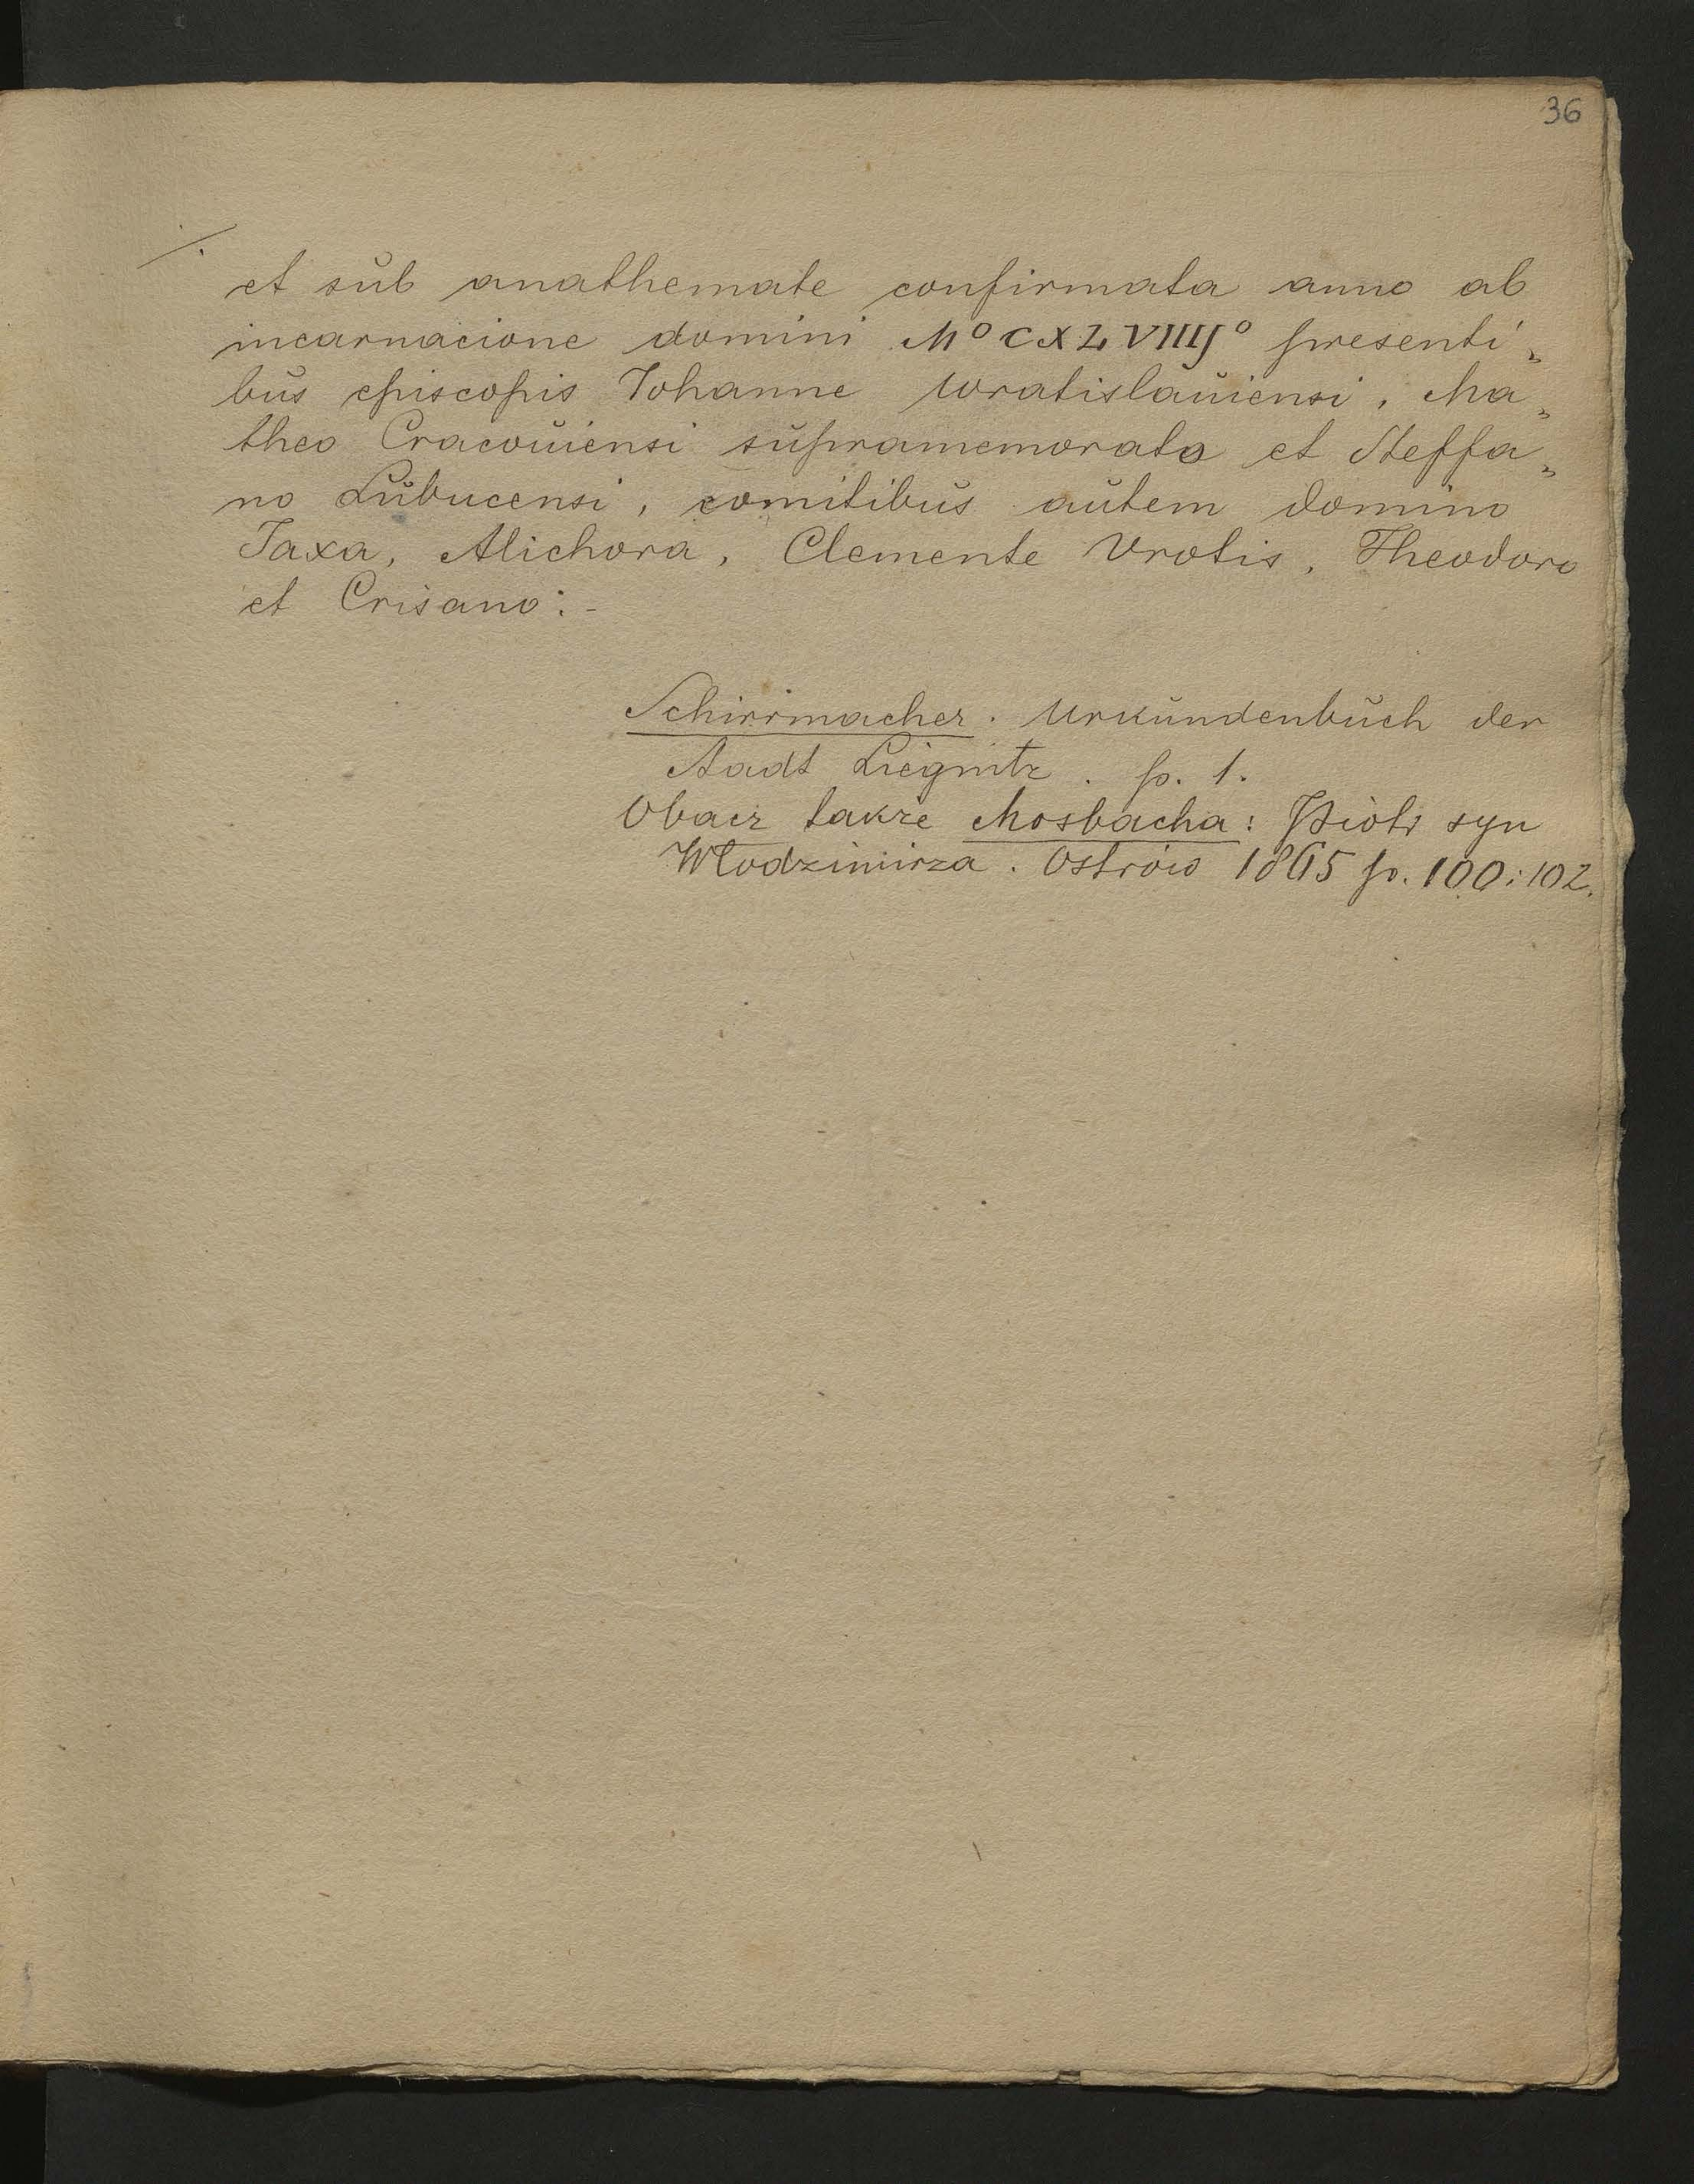 36
./.
et sub anathemate confirmata anno ab
incarnacione domini M° CXLVIIIJ° presenti„
bus episcopis Johanne Wratislauiensi, Ma„
theo Cracouiensi supramemorato et Steffa„
no Lubucensi, comitibus autem domino
Jaxa, Michora, Clemente Vrotis, Theodoro
et Crisano:-
Schirrmacher. Urkundenbuch der
Stadt Liegnitz. p. 1.
Obacz także Mosbacha: Piotr syn
Włodzimirza. Ostrów 1865 p. 100 i 102.